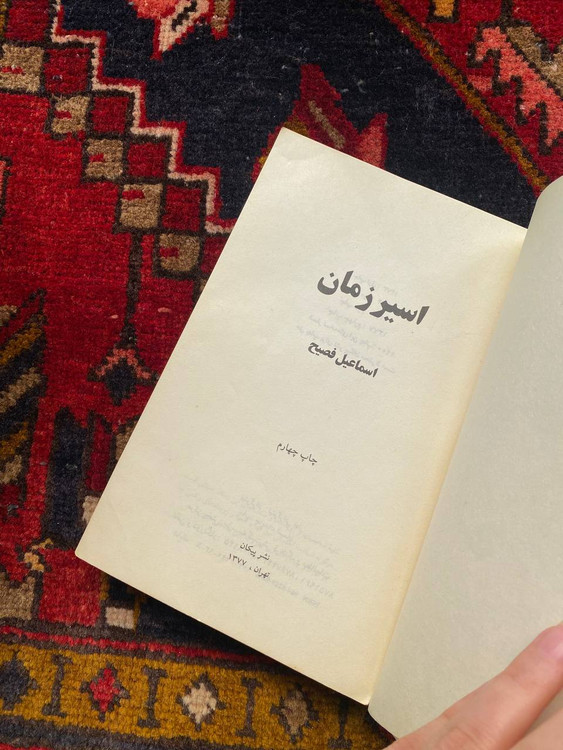 اسیر زمان
اسماعیل فصیح
چاپ چهارم
نشر پیکان
تهران، ۱۳۷۷